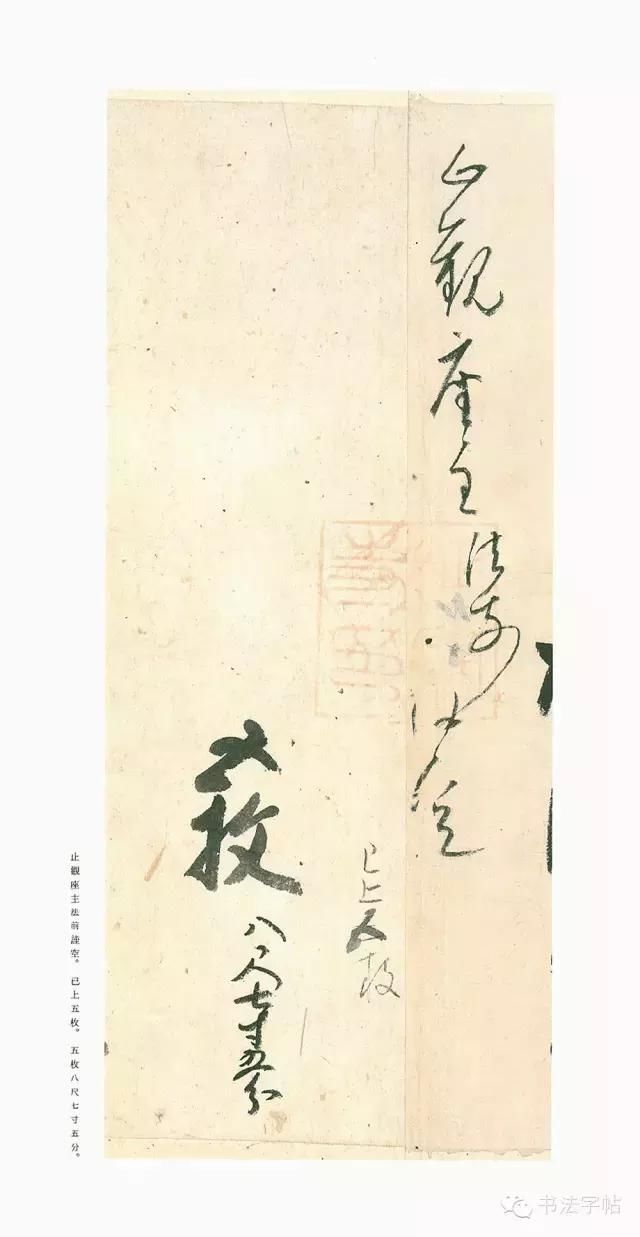 止觀座主法前謹空
已上五枚
五枚八尺七寸五分
止觀座主法前謹空。已上五枚。五枚八尺七寸五分。
书法字帖